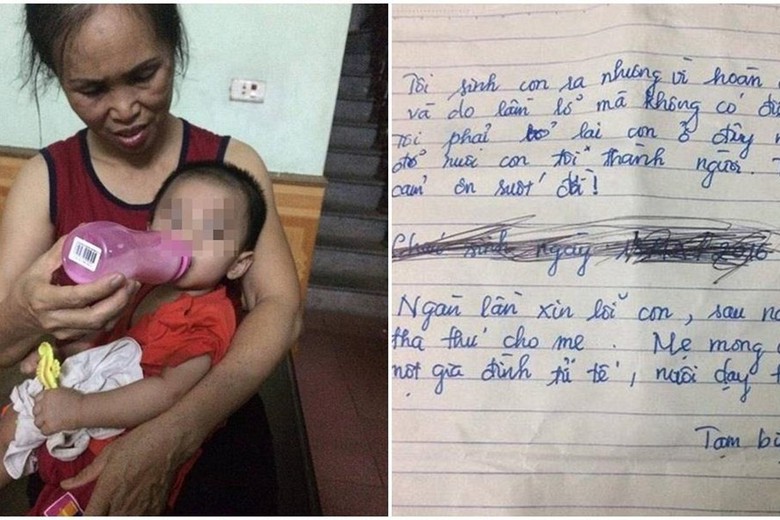 Tôi sinh con ra nhưng vì hoàn
và do lầm lỡ mà không có
Tôi phải bỏ lại con ở đây
đỡ nuôi con tôi thành người.
cảm ơn suốt đời!
sinh ngày
Ngàn lần xin lỗi con, sau
tha thứ cho mẹ. Mẹ mong
một gia đình tử tế, nuôi dạy
Tạm